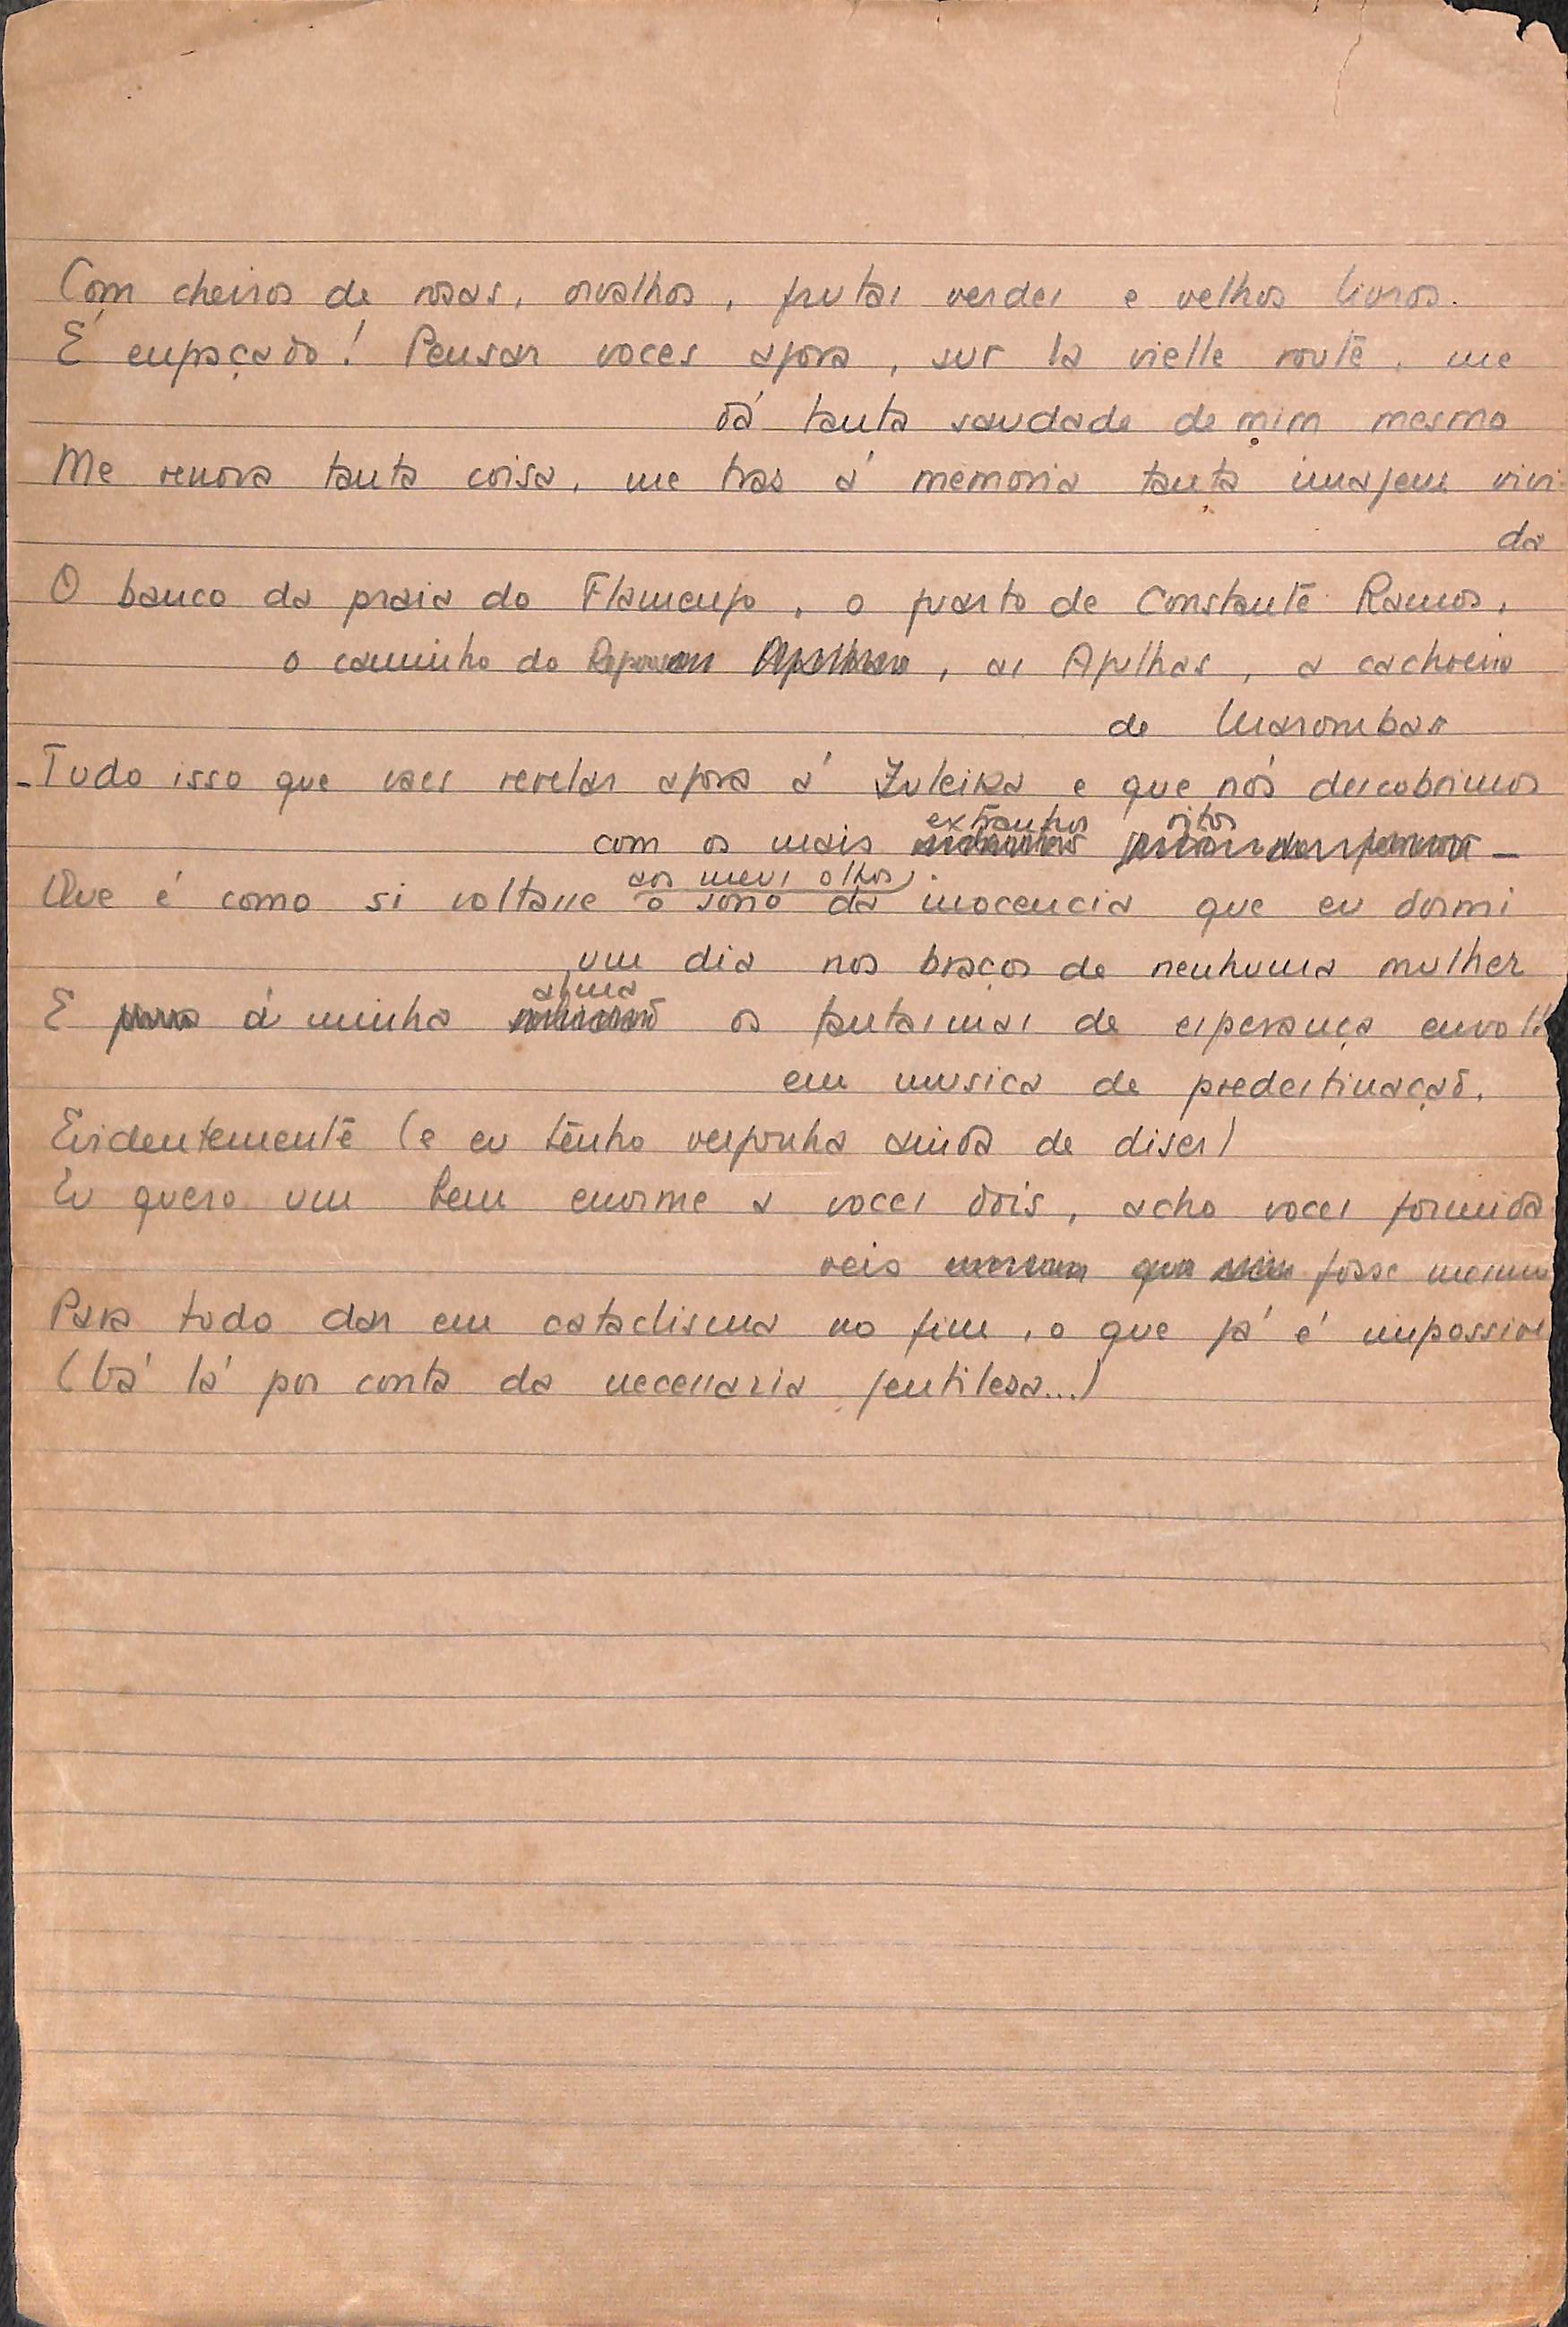 Com cheiros de rosas, orvalhos, frutas verdes e velhos livros.
É engraçado! Pensar voces agora, sur la vielle route, me
dá tanta saudade de mim mesmo
Me renova tanta coisa, me tras á memoria tanta imagem vivi-
da
O banco da praia do Flamengo, o quarto de Constante Ramos,
o caminho do Repouso, as Agulhas, a cachoeira
de Marombas
- Tudo isso que vaes revelar agora á Zuleika e que nós descobrimos
extranhos ritos
com os mais -
aos meus olhos
Que é como si voltasse o sono da inocencia que eu dormi
um dia nos braços de nenhuma mulher
alma
E á minha os fantasmas de esperança envolt
em musica de predestinação.
Evidentemente (e eu tenho vergonha ainda de diser)
Eu quero um bem enorme a voces dois, acho voces formida
veis fosse mesmo
Para tudo dar em cataclisma no fim, o que já é impossive
(Vá lá por conta da necessaria gentilesa...)